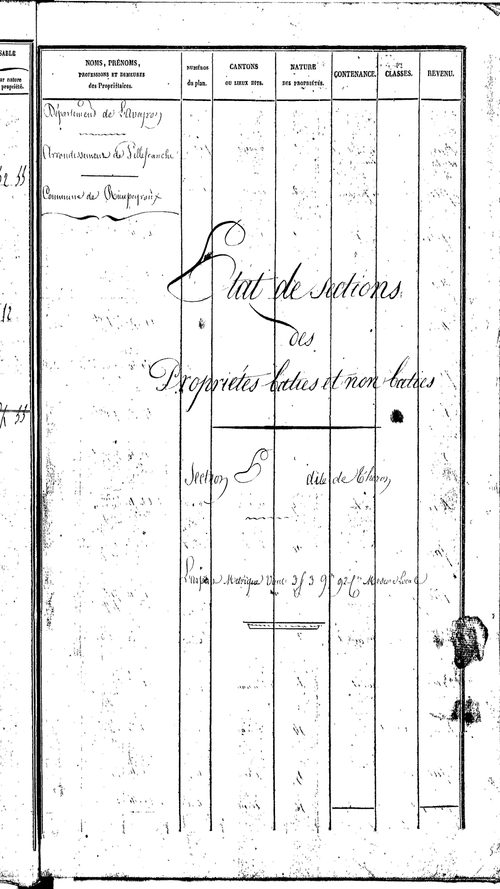 SABLE
ur nature
propriété.
NOMS, PRÉNOMS,
PROFESSIONS ET DEMEURES
des Propriétaires.
NUMÉROS
du plan.
CANTONS
OU LIEUX DITS.
NATURE
DES PROPRIÉTÉS.
CONTENANCE.
CLASSES.
REVENU.
Département de L'aveyron
Arrondissement de Villefranche
Commune de Rieupeyroux
Etat de sections
des
Propriétés baties et non baties
Section E dite de
12
55